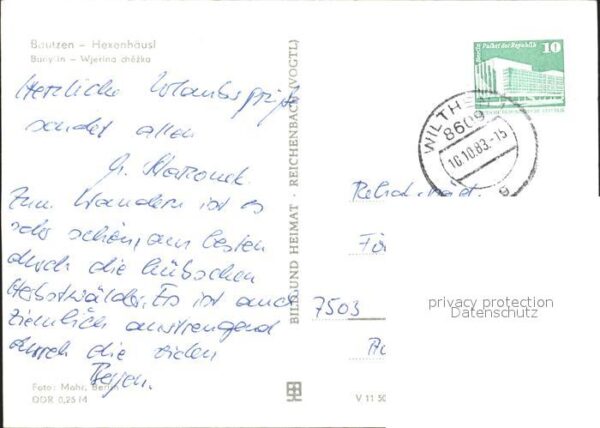 Bautzen – Hexenhäusl
Budyšin – Wjerina chěžka
Herzliche Urlaubsgrüße
sendet allen
Zum Wandern ist es
sehr schön, am besten
durch die hübschen
Herbstwälder. Es ist auch
ziemlich anstrengend
durch die vielen
Bergen.
Foto: Mahr, Berlin
DDR 0,25 M
BILD UND HEIMAT · REICHENBACH (VOGTL)
V 11 50
Berlin Palast der Republik
10
WILTHEN
8609
10.10.83.-15
7503
privacy protection
Datenschutz